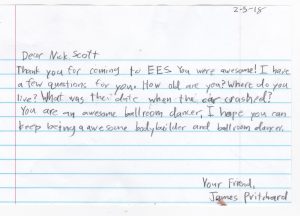 2-5-18
Dear Nick Scott
Thank you for coming to EES. You were awesome! I have
a few questions for you. How old are you? Where do you
live? What was the date when the car crashed?
You are an awesome ballroom dancer, I hope you can
keep being a awesome bodybuilder and ballroom dancer.
Your Friend,
James Pritchard